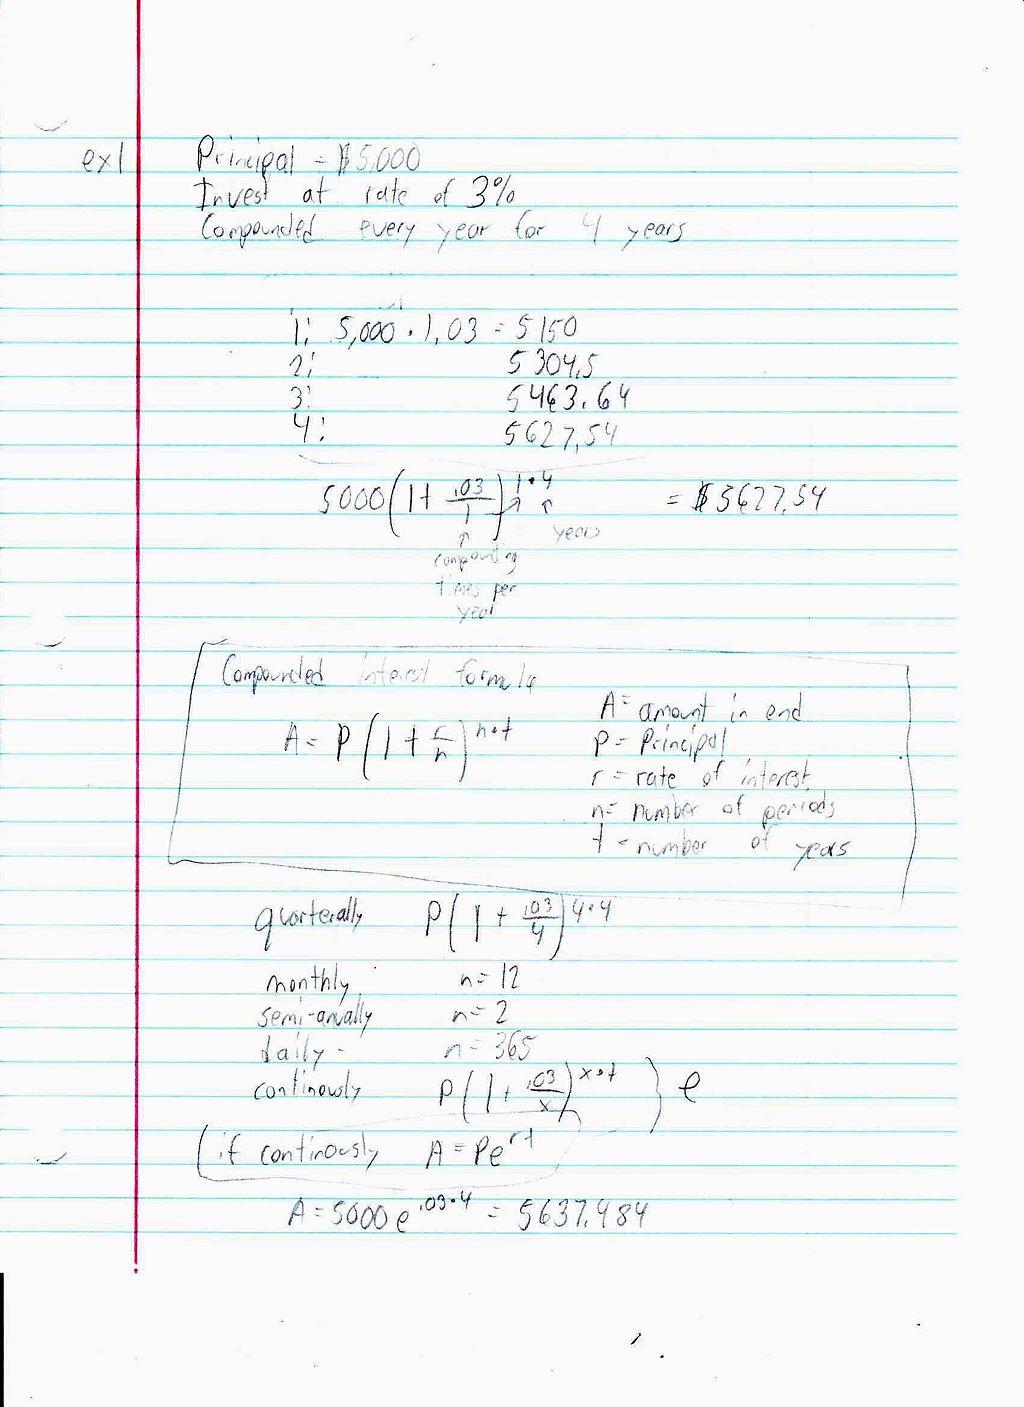 ex1 Principal = $5,000
Invest at rate of 3%
Compounded every year for 4 years
1: 5,000 · 1.03 = 5150
2: 5304.5
3: 5463.64
4: 5627.54
5000(1 + .03/1)^1·4 = $5627.54
years
compounding
times per
year
Compounded interest formula
A = amount in end
A = P(1 + r/n)^n·t
P = Principal
r = rate of interest
n = number of periods
t = number of years
quarterally P(1 + .03/4)^4·4
monthly n = 12
semi-anually n = 2
daily - n = 365
continously P(1 + .03/x)^x·t } e
if continously A = Pe^rt
A = 5000e^.03·4 = 5637.484